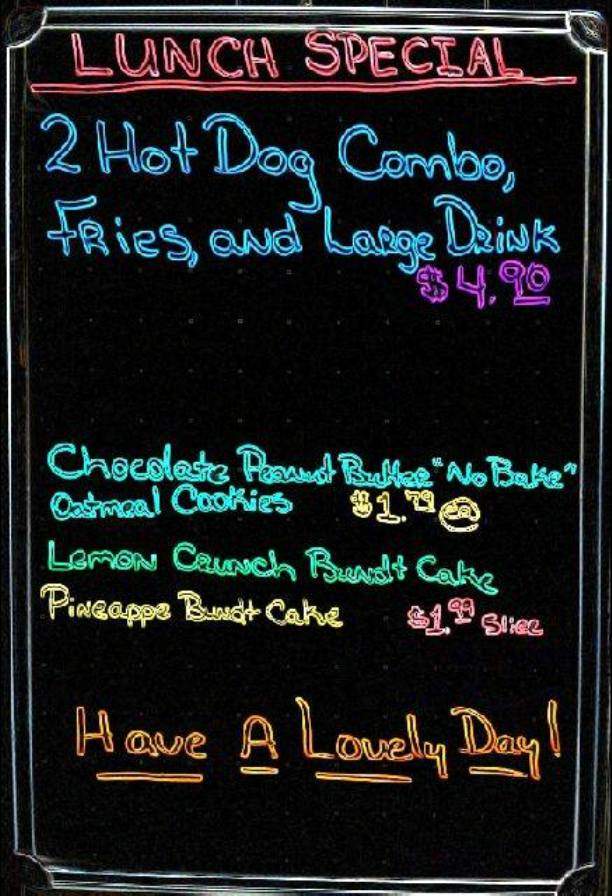 LUNCH SPECIAL
2 Hot Dog Combo,
Fries, and Large Drink
$4.90
Chocolate Peanut Butter "No Bake"
Oatmeal Cookies $1.79 ea
Lemon Crunch Bundt Cake
Pineappe Bundt Cake $1.99 Slice
Have A Lovely Day!